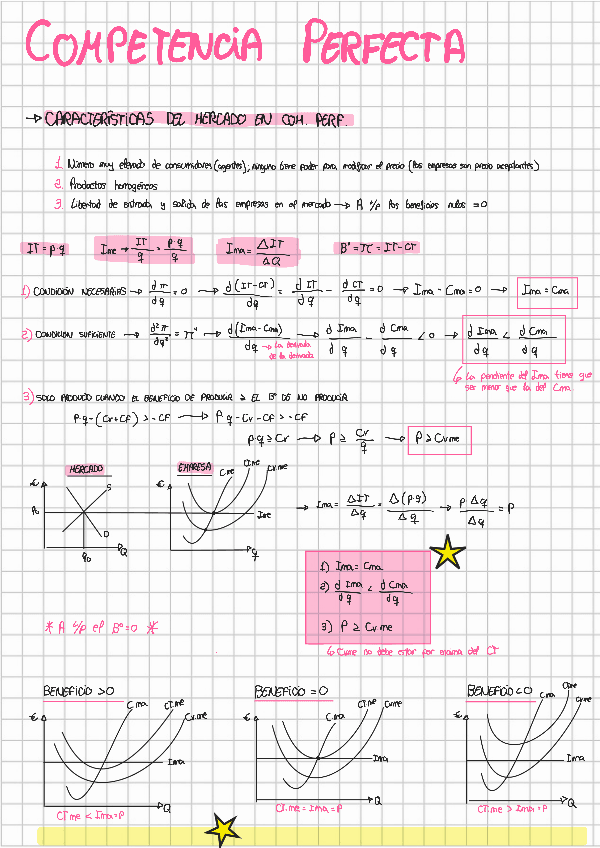 COMPETENCIA PERFECTA
→ CARACTERÍSTICAS DEL MERCADO EN COM. PERF.
1. Número muy elevado de consumidores (agentes); ninguno tiene poder para modificar el precio (las empresas son precio aceptantes)
2. Productos homogéneos
3. Libertad de entrada y salida de las empresas en el mercado → A l/p los beneficios nulos = 0
IT = p·q   Ime → IT/q = p·q/q   Ima = ΔIT/ΔQ   Bº = π = IT-CT
1) CONDICIÓN NECESARIAS → dπ/dq = 0 → d(IT-CT)/dq = dIT/dq - dCT/dq = 0 → Ima - Cma = 0 → Ima = Cma
2) CONDICIÓN SUFICIENTE → d²π/dq² = π'' → d(Ima-Cma)/dq → d Ima/dq - d Cma/dq < 0 → d Ima/dq < d Cma/dq
→ La derivada de la derivada
↳ La pendiente del Ima tiene que ser menor que la del Cma
3) SOLO PRODUZCO CUANDO EL BENEFICIO DE PRODUCIR ≥ EL Bº DE NO PRODUCIR
P·q - (Cv+CF) > -CF → P·q - Cv - CF > -CF
P·q ≥ Cv → P ≥ Cv/q → P ≥ Cvme
MERCADO   EMPRESA
€ S P₀ D q₀ Q
€ Cme CTme Cvme Ime q
→ Ima = ΔIT/Δq = Δ(P·q)/Δq → P Δq/Δq = P
1) Ima = Cma
2) d Ima/dq < d Cma/dq
3) P ≥ Cvme
* A l/p el Bº = 0 *
BENEFICIO > 0   BENEFICIO = 0   BENEFICIO < 0
€ Cma CTme Cvme Ima Q
€ Cma CTme Cvme Ima Q
€ Cma CTme Cvme Ima Q
CTme < Ima = P   CTme = Ima = P   CTme > Ima = P